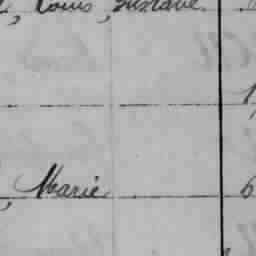 , Louis, Gustave.
, Marie 6